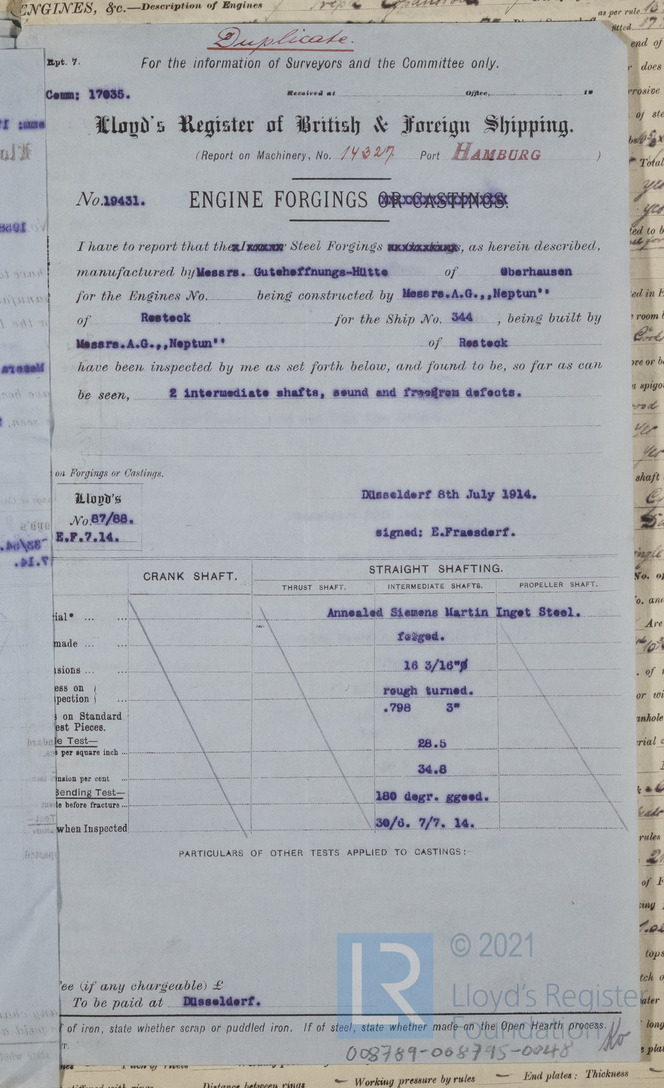 ENGINES, &c.—Description of Engines
as per rule
Duplicate.
Rpt. 7.
For the information of Surveyors and the Committee only.
Comm; 17035.
Received at
Office,
19
Lloyd's Register of British & Foreign Shipping.
(Report on Machinery, No. 14327 Port HAMBURG )
No. 19431.
ENGINE FORGINGS OR CASTINGS.
I have to report that the Steel Forgings , as herein described,
manufactured by Messrs. Gutehoffnungs-Hütte of Oberhausen
for the Engines No. being constructed by Messrs.A.G.,,Neptun''
of Rostock for the Ship No. 344 , being built by
Messrs.A.G.,,Neptun'' of Rostock
have been inspected by me as set forth below, and found to be, so far as can
be seen, 2 intermediate shafts, sound and defects.
on Forgings or Castings.
Lloyd's
No. 87/88.
E.F.7.14.
Düsseldorf 8th July 1914.
signed: E.Fraesdorf.
CRANK SHAFT.
STRAIGHT SHAFTING.
THRUST SHAFT.
INTERMEDIATE SHAFTS.
PROPELLER SHAFT.
ial* ... ...
Annealed Siemens Martin Ingot Steel.
made ... ...
forged.
sions ... ...
16 3/16"ø
ess on
pection
...
rough turned.
on Standard
est Pieces.
.798 3"
e Test—
s per square inch ...
28.5
nsion per cent ...
34.8
Bending Test—
le before fracture ...
180 degr. ggood.
when Inspected
30/6. 7/7. 14.
PARTICULARS OF OTHER TESTS APPLIED TO CASTINGS:
ee (if any chargeable) £
To be paid at Düsseldorf.
f of iron, state whether scrap or puddled iron. If of steel, state whether made on the Open Hearth process.
LR
© 2021
Lloyd's Register
Foundation
008789-008795-0048
Distance between rings
Working pressure by rules
End plates: Thickness